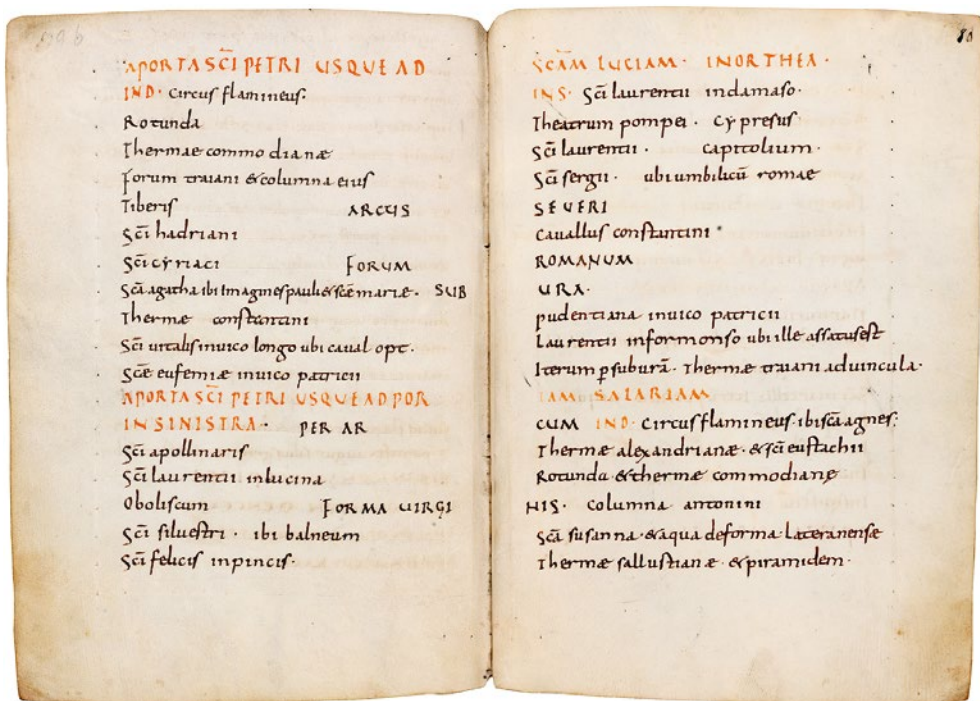 79b
APORTA SC̄I PETRI USQUE AD
IND· Circus flamineus·
Rotunda
Thermae commodianæ
Forum traiani & columna eius
Tiberis ARCUS
Sc̄i hadriani
Sc̄i cyriaci FORUM
Sc̄a agatha ibi Imagines pauli & sc̄e mariæ· SUB
Thermæ constantini
Sc̄i vitalis inuico longo ubi caval opt·
Sc̄e eufemiæ inuico patricii
APORTA SC̄I PETRI USQUE AD POR
IN SINISTRA· PER AR
Sc̄i apollinaris
Sc̄i laurentii inlucina
Oboliscum FORMA UIRGI
Sc̄i silvestri· ibi balneum
Sc̄i felicis inpincis·
80
SC̄AM LUCIAM· INORTHEA·
INS· Sc̄i laurentii indamaso·
Theatrum pompei· Cypresus
Sc̄i laurentii· capitolium·
Sc̄i sergii· ubi umbilicū romae
SEUERI
Cavallus constantini
ROMANUM
URA·
pudentiana inuico patricii
Laurentii informonso ubi ille assatusest
Iterum p̱ suburā· Thermæ traiani aduincula·
TAM SALARIAM
CUM IND· Circus flamineus· ibi sc̄a agnes:
Thermæ alexandrianæ· & sc̄i eustachii
Rotunda & thermæ commodianę
NIS· Columna antonini
Sc̄a susanna· & aqua deforma lateranense
Thermæ sallustianæ· & piramidem·